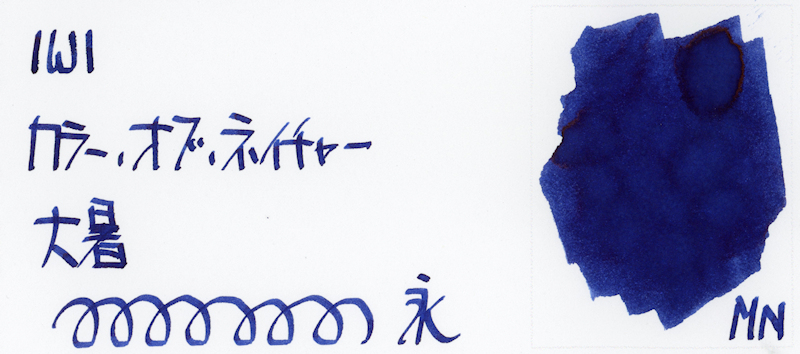 IWI
カラー・オブ・ネイチャー
大暑
永
MN